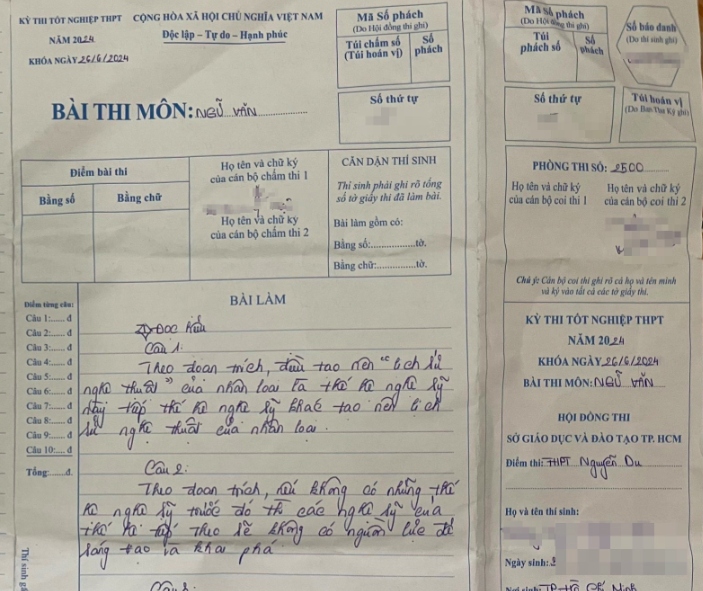 KỲ THI TỐT NGHIỆP THPT
NĂM 2024
KHÓA NGÀY 26/6/2024
CỘNG HÒA XÃ HỘI CHỦ NGHĨA VIỆT NAM
Độc lập - Tự do - Hạnh phúc
BÀI THI MÔN: NGỮ VĂN
Mã Số phách
(Do Hội đồng thi ghi)
Túi chấm số
(Túi hoán vị)
Số phách
Số thứ tự
Điểm bài thi
Bằng số
Bằng chữ
Họ tên và chữ ký
của cán bộ chấm thi 1
Họ tên và chữ ký
của cán bộ chấm thi 2
CĂN DẶN THÍ SINH
Thí sinh phải ghi rõ tổng
số tờ giấy thi đã làm bài.
Bài làm gồm có:
Bằng số:................tờ.
Bằng chữ:................tờ.
Điểm từng câu:
Câu 1:...... đ
Câu 2:...... đ
Câu 3:...... đ
Câu 4:...... đ
Câu 5:...... đ
Câu 6:...... đ
Câu 7:...... đ
Câu 8:...... đ
Câu 9:...... đ
Câu 10:.... đ
Tổng:.......đ.
BÀI LÀM
Đọc hiểu
Câu 1:
Theo đoạn trích, đầu tạo nên "lịch sử
nghệ thuật" của nhân loại là thế hệ nghệ sỹ
này tiếp thế hệ nghệ sỹ khác tạo nên lịch
sử nghệ thuật của nhân loại.
Câu 2:
Theo đoạn trích, nếu không có những thế
hệ nghệ sỹ trước đó thì các nghệ sỹ của
thế hệ tiếp theo sẽ không có nguồn lực để
sáng tạo là khai phá.
Thí sinh
Mã Số phách
(Do Hội đồng thi ghi)
Túi
phách số
Số
phách
Số báo danh
(Do thí sinh ghi)
Số thứ tự
Túi hoán vị
(Do Ban Thư Ký ghi)
PHÒNG THI SỐ: 2500
Họ tên và chữ ký
của cán bộ coi thi 1
Họ tên và chữ ký
của cán bộ coi thi 2
Chú ý: Cán bộ coi thi ghi rõ cả họ và tên mình
và ký vào tất cả các tờ giấy thi.
KỲ THI TỐT NGHIỆP THPT
NĂM 2024
KHÓA NGÀY 26/6/2024
BÀI THI MÔN: NGỮ VĂN
HỘI ĐỒNG THI
SỞ GIÁO DỤC VÀ ĐÀO TẠO TP. HCM
Điểm thi: THPT Nguyễn Du
Họ và tên thí sinh:
Ngày sinh:
Nơi sinh: TP Hồ Chí Minh